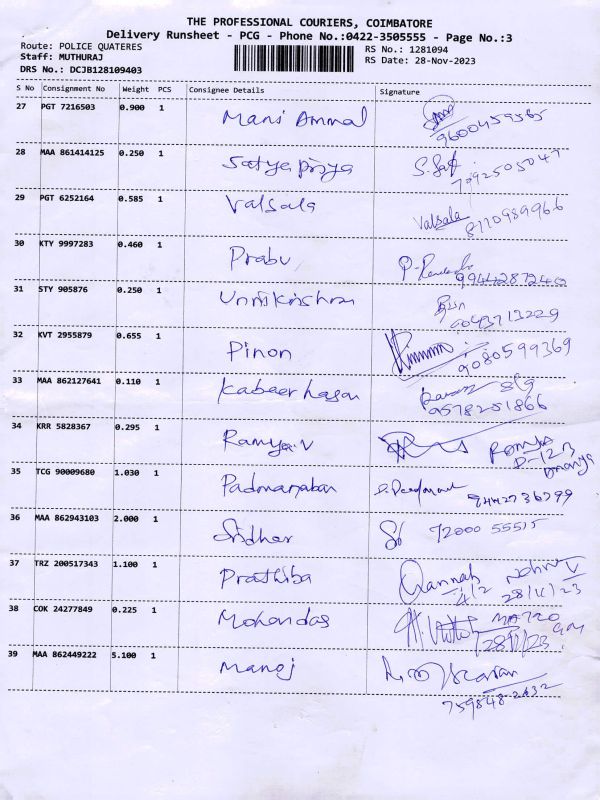 THE PROFESSIONAL COURIERS, COIMBATORE
Delivery Runsheet - PCG - Phone No.:0422-3505555 - Page No.:3
Route: POLICE QUATERES
RS No.: 1281094
Staff: MUTHURAJ
RS Date: 28-Nov-2023
DRS No.: DCJB128109403
S No Consignment No Weight PCS Consignee Details Signature
27 PGT 7216503 0.900 1 Mani Ammal
9600459565
28 MAA 861414125 0.250 1 Satya priya
7092505047
29 PGT 6252164 0.585 1 Valsala Valsala
8110989966
30 KTY 9997283 0.460 1 Prabu
31 STY 905876 0.250 1 Unnikrishnan
9043713229
32 KVT 2955879 0.655 1 Pinon
9080599369
33 MAA 862127641 0.110 1 Kabeer hasan
9578251866
34 KRR 5828367 0.295 1 Ramya.V
D-123
35 TCG 90009680 1.030 1 Padmanaban
9442736799
36 MAA 862943103 2.000 1 Sridhar 72000 55515
37 TRZ 200517343 1.100 1 Prathiba
4/2 28/11/23
38 COK 24277849 0.225 1 Mohandas
28/11/23
39 MAA 862449222 5.100 1 Manoj
759848-2432